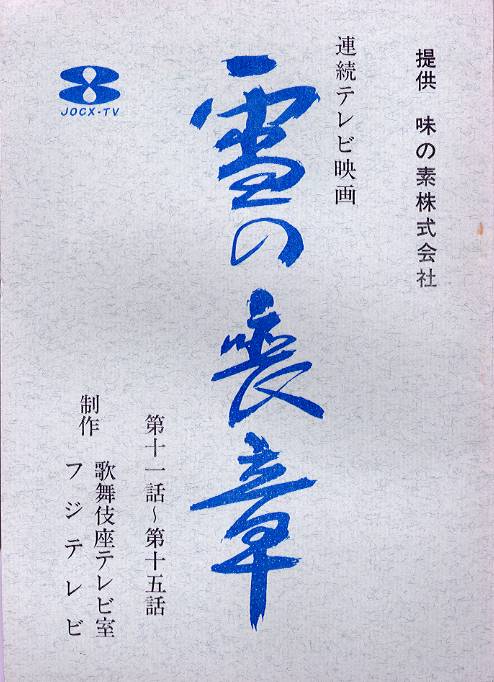 提供 味の素株式会社
連続テレビ映画
雪の喪章
第十一話~第十五話
制作 歌舞伎座テレビ室
フジテレビ
JOCX-TV